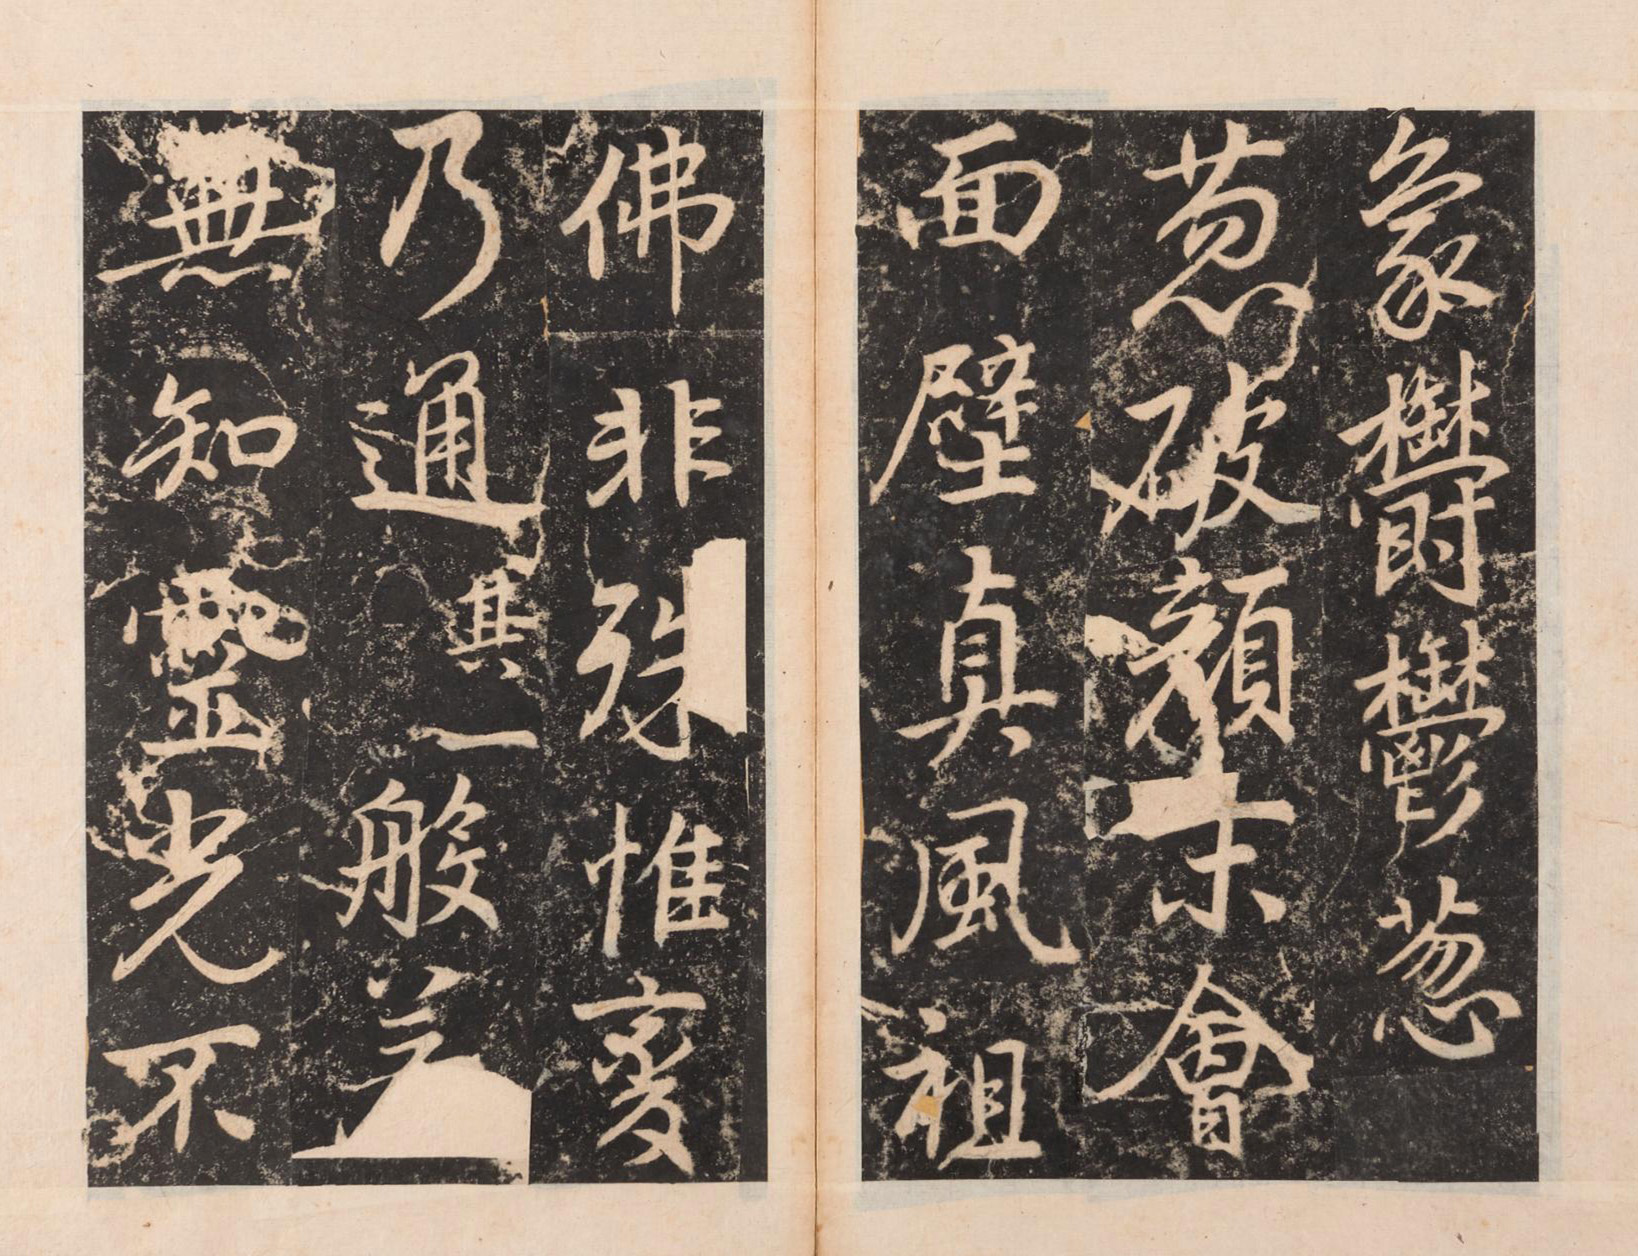 象鬱鬱葱
葱破顏未會
面壁真風祖
佛非殊惟變
乃通其一般若
無知靈光不